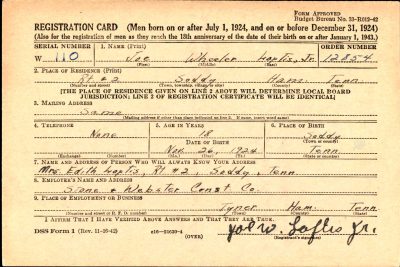 Form Approved
Budget Bureau No. 33-R012-42
REGISTRATION CARD (Men born on or after July 1, 1924, and on or before December 31, 1924)
(Also for the registration of men as they reach the 18th anniversary of the date of their birth on or after January 1, 1943.)
SERIAL NUMBER 1. NAME (Print) ORDER NUMBER
W 110 Joe Wheeler Loftis, Jr. 12854
(First) (Middle) (Last)
2. PLACE OF RESIDENCE (Print)
Rt # 2 Soddy Ham. Tenn
(Number and street) (Town, township, village or city) (County) (State)
[THE PLACE OF RESIDENCE GIVEN ON LINE 2 ABOVE WILL DETERMINE LOCAL BOARD
JURISDICTION; LINE 2 OF REGISTRATION CERTIFICATE WILL BE IDENTICAL]
3. MAILING ADDRESS
Same
[Mailing address if other than place indicated on line 2. If same, insert word same]
4. TELEPHONE 5. AGE IN YEARS 6. PLACE OF BIRTH
None 18 Soddy
DATE OF BIRTH (Town or county)
Nov. 26, 1924 Tenn
(Exchange) (Number) (Mo.) (Day) (Yr.) (State or country)
7. NAME AND ADDRESS OF PERSON WHO WILL ALWAYS KNOW YOUR ADDRESS
Mrs. Edith Loftis, Rt #2, Soddy, Tenn
8. EMPLOYER'S NAME AND ADDRESS
Stone & Webster Const Co.
9. PLACE OF EMPLOYMENT OR BUSINESS
Tyner Ham. Tenn
(Number and street or R. F. D. number) (Town) (County) (State)
I AFFIRM THAT I HAVE VERIFIED ABOVE ANSWERS AND THAT THEY ARE TRUE.
DSS Form 1 (Rev. 11-16-42) (OVER) Joe W. Loftis Jr.
(Registrant's signature)